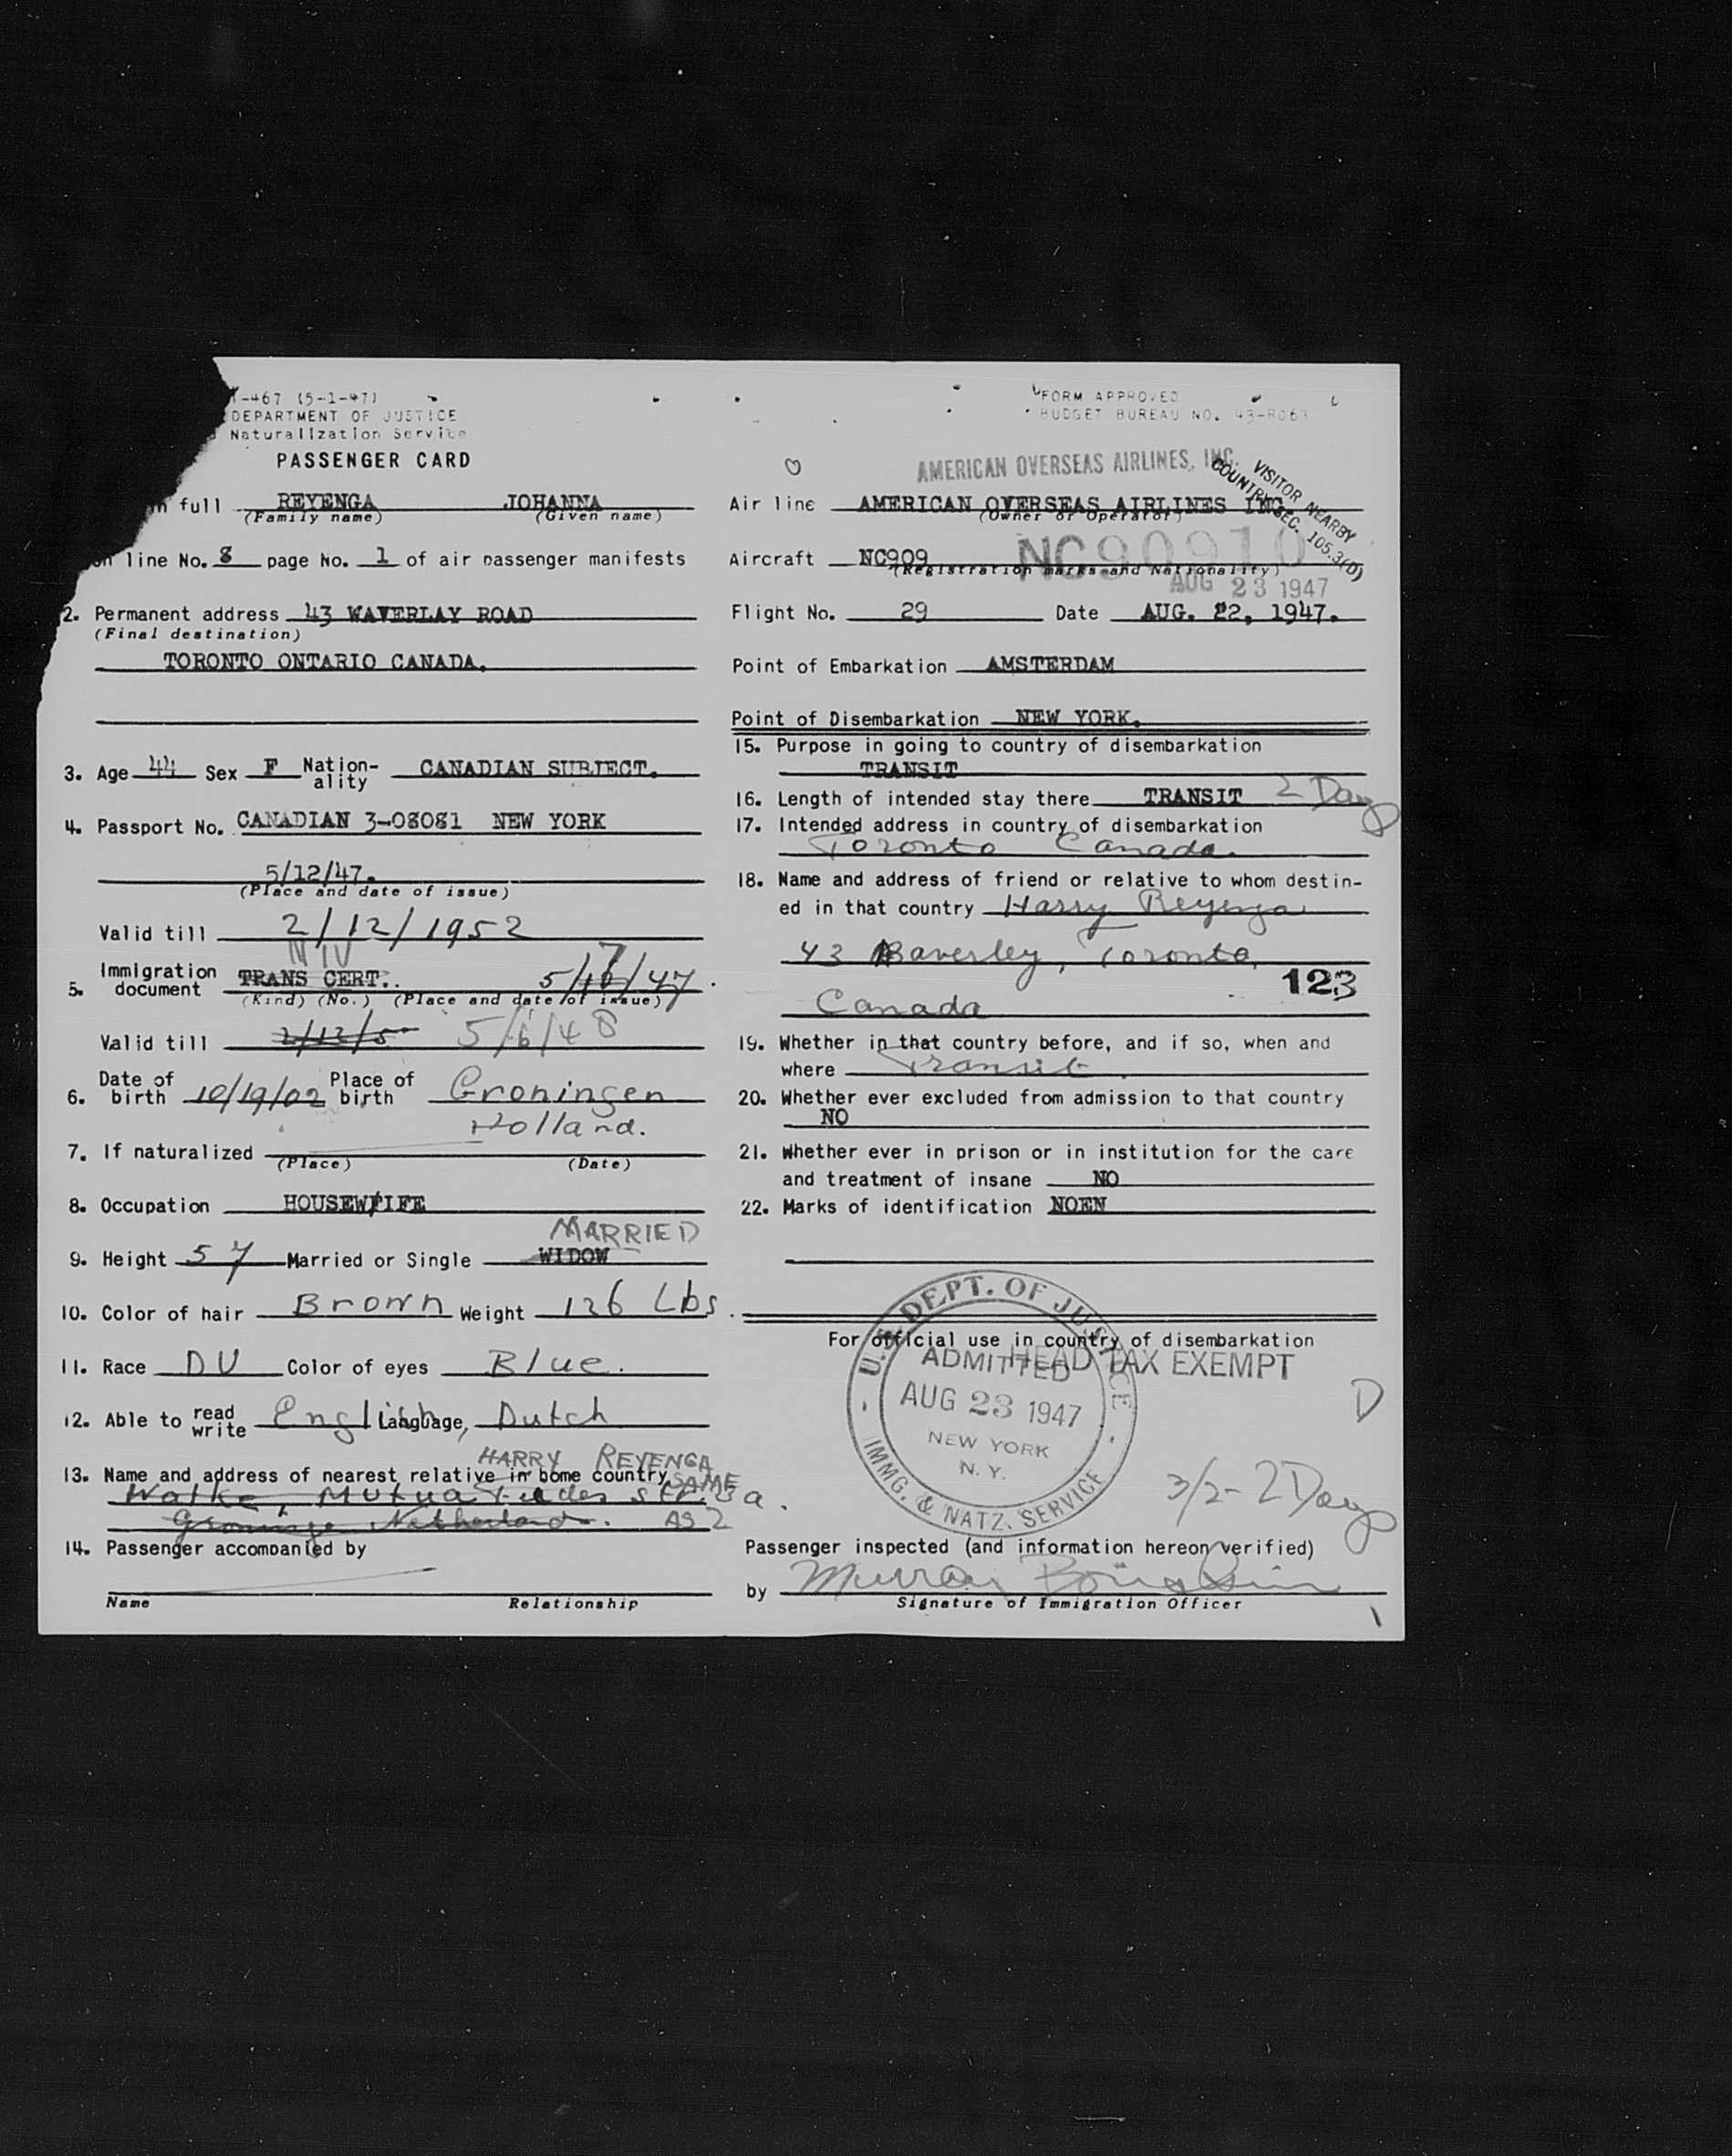 -467 (5-1-47)
DEPARTMENT OF JUSTICE
Naturalization Service
PASSENGER CARD
full REYENGA JOHANNA
(Family name) (Given name)
line No. 8 page No. 1 of air passenger manifests
2. Permanent address 43 WAVERLAY ROAD
(Final destination)
TORONTO ONTARIO CANADA.
3. Age 44 Sex F Nation-ality CANADIAN SUBJECT.
4. Passport No. CANADIAN 3-08081 NEW YORK
5/12/47.
(Place and date of issue)
Valid till 2/12/1952
NIV
5. Immigration document TRANS CERT.. 5/ 7/47
(Kind) (No.) (Place and date of issue)
Valid till 2/12/5 5/6/48
6. Date of birth 10/19/02 Place of birth Groningen
Holland.
7. If naturalized
(Place) (Date)
8. Occupation HOUSEWIFE
MARRIED
9. Height 5 7 Married or Single WIDOW
10. Color of hair Brown Weight 126 Lbs.
11. Race DU Color of eyes Blue.
12. Able to read write English Language, Dutch
HARRY REYENGA
13. Name and address of nearest relative in home country SAME
AS 2
14. Passenger accompanied by
Name Relationship
FORM APPROVED
BUDGET BUREAU NO. 43-R063
AMERICAN OVERSEAS AIRLINES, INC.
VISITOR NEARBY
COUNTRY SEC. 105.3(D)
Air line AMERICAN OVERSEAS AIRLINES INC.
(Owner or Operator)
Aircraft NC909 NC90910
(Registration marks and Nationality)
AUG 23 1947
Flight No. 29 Date AUG. 22, 1947.
Point of Embarkation AMSTERDAM
Point of Disembarkation NEW YORK.
15. Purpose in going to country of disembarkation
TRANSIT
16. Length of intended stay there TRANSIT 2 Days
17. Intended address in country of disembarkation
Toronto Canada.
18. Name and address of friend or relative to whom destin-
ed in that country Harry Reyenga
43 Baverley, Toronto,
123
Canada
19. Whether in that country before, and if so, when and
where Transit.
20. Whether ever excluded from admission to that country
NO
21. Whether ever in prison or in institution for the care
and treatment of insane NO
22. Marks of identification NOEN
For official use in country of disembarkation
HEAD TAX EXEMPT
U.S. DEPT. OF JUSTICE
ADMITTED
AUG 23 1947
NEW YORK
N.Y.
IMMG. & NATZ. SERVICE
D
3/2 - 2 Days
Passenger inspected (and information hereon verified)
by Murray
Signature of Immigration Officer